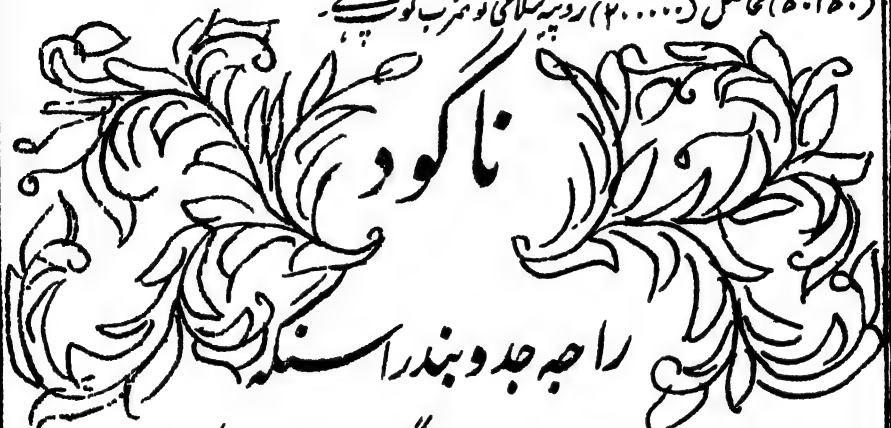 (۵۰۱۵۰) (۲۰۰۰۰۰) روپیہ سلامی توپ ہے۔
ناگود
راجہ جدوبندرا سنگھ